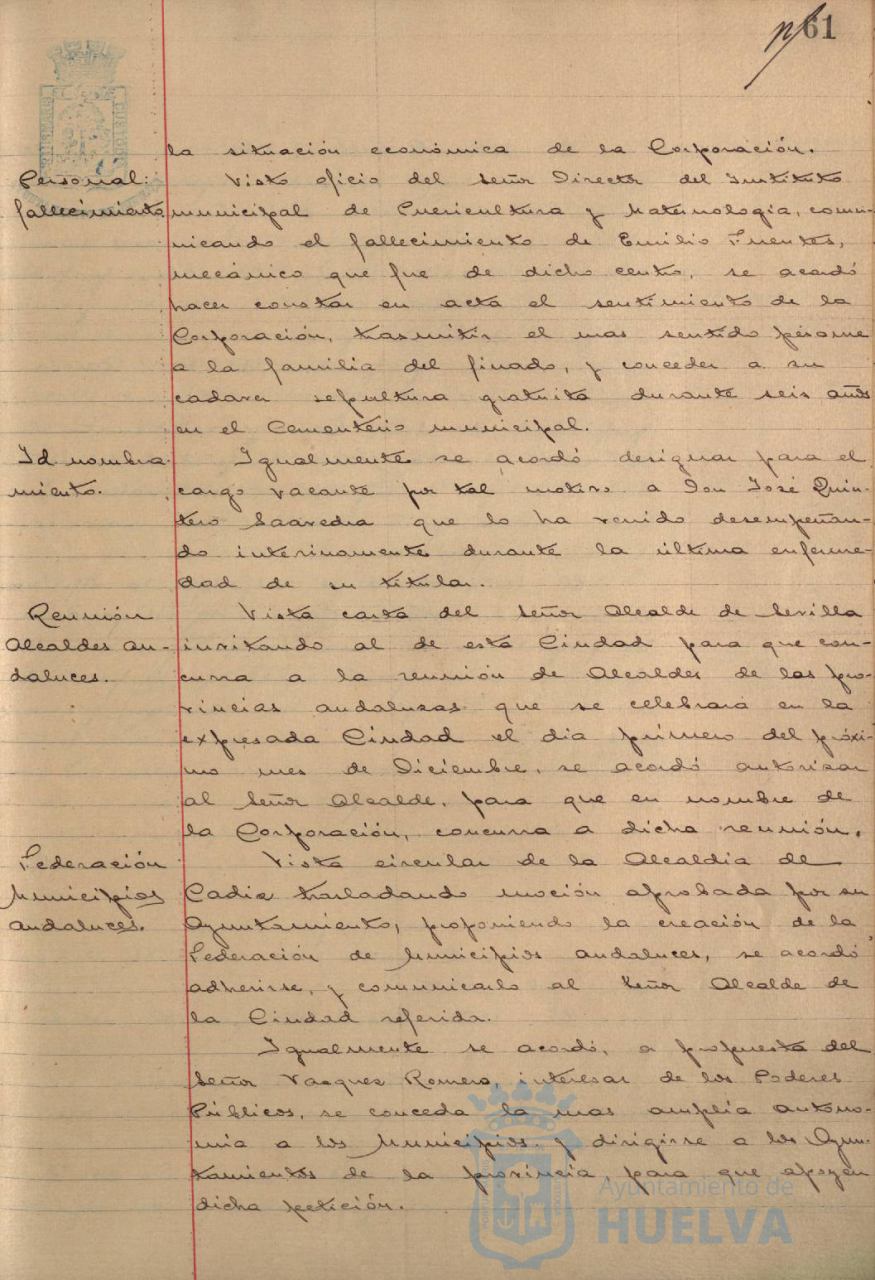 61
la situación económica de la Corporación.
Personal:
fallecimiento
Visto oficio del Señor Director del Instituto
municipal de Puericultura y Maternologia, comu-
nicando el fallecimiento de Emilio Fuentes,
mecánico que fue de dicho centro, se acordó
hacer constar en acta el sentimiento de la
Corporación, trasmitir el mas sentido pésame
a la familia del finado, y conceder a su
cadaver sepultura gratuita durante seis años
en el Cementerio municipal.
Id nombra-
miento.
Igualmente se acordó designar para el
cargo vacante por tal motivo a Don José Quin-
tero Saavedra que lo ha venido desempeñan-
do interinamente durante la última enferme-
dad de su titular.
Reunión
Alcaldes an-
daluces.
Vista carta del Señor Alcalde de Sevilla
invitando al de esta Ciudad para que con-
curra a la reunión de Alcaldes de las pro-
vincias andaluzas que se celebrará en la
expresada Ciudad el dia primero del próxi-
mo mes de Diciembre, se acordó autorizar
al Señor Alcalde, para que en nombre de
la Corporación, concurra a dicha reunión.
Federación
Municipios
andaluces.
Vista circular de la Alcaldia de
Cadiz trasladando moción aprobada por su
Ayuntamiento, proponiendo la creación de la
Federación de Municipios andaluces, se acordó
adherirse, y comunicarlo al Señor Alcalde de
la Ciudad referida.
Igualmente se acordó, a propuesta del
Señor Vazquez Romero, interesar de los Poderes
Públicos, se conceda la mas amplia autono-
mia a los Municipios y dirigirse a los Ayun-
tamientos de la provincia, para que apoyen
dicha petición.
Ayuntamiento de
HUELVA